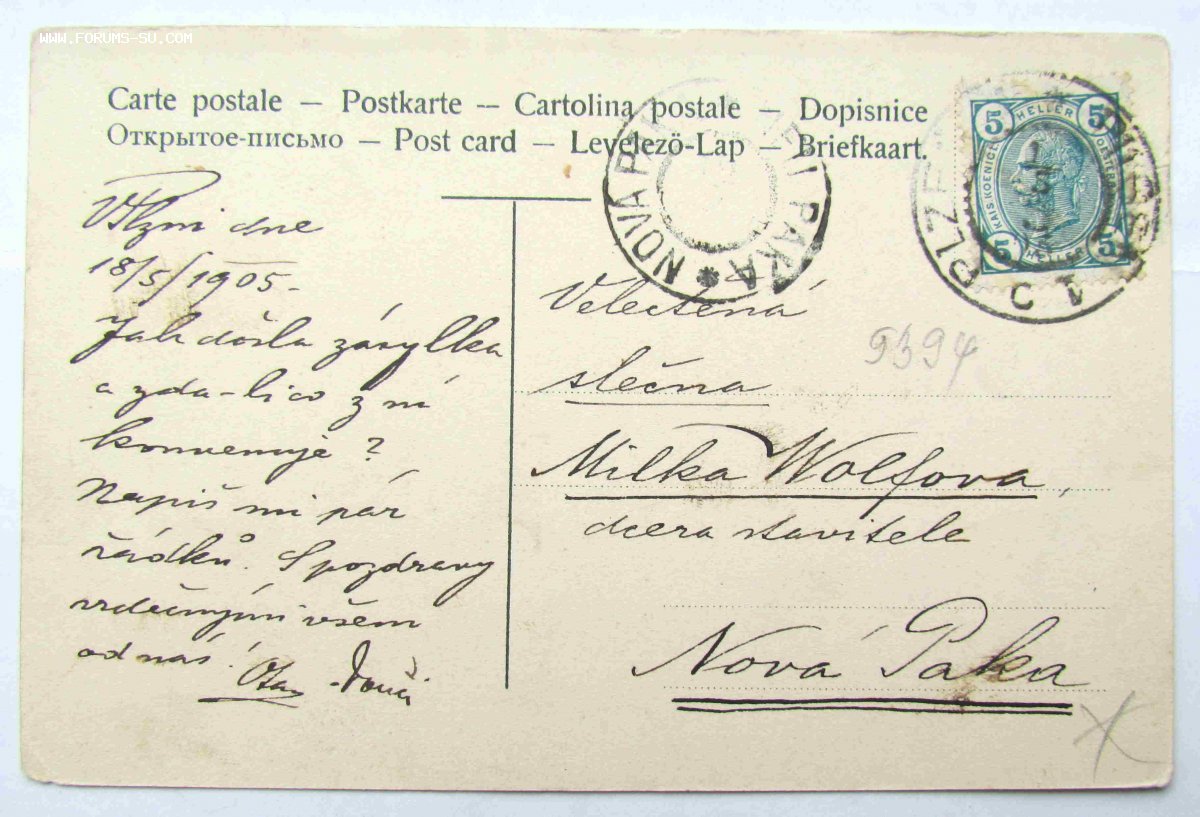 WWW.FORUMS-SU.COM
Carte postale — Postkarte — Cartolina postale — Dopisnice
Открытое-письмо — Post card — Levelezö-Lap — Briefkaart.
V Plzni dne
18/5/1905.
Jak došla zásylka
a zda-li co z ní
konvenuje?
Napiš mi pár
řádků. S pozdravy
srdečnými všem
od nás!
NOVA PAKA * NOVÁ PAKA
5 HELLER 5
KAIS. KOENIGL. OESTERR.
5 HELLER 5
PLZEŇ
1 C
Velectěná
slečna
9394
Milka Wolfova,
dcera stavitele
Nová Paka